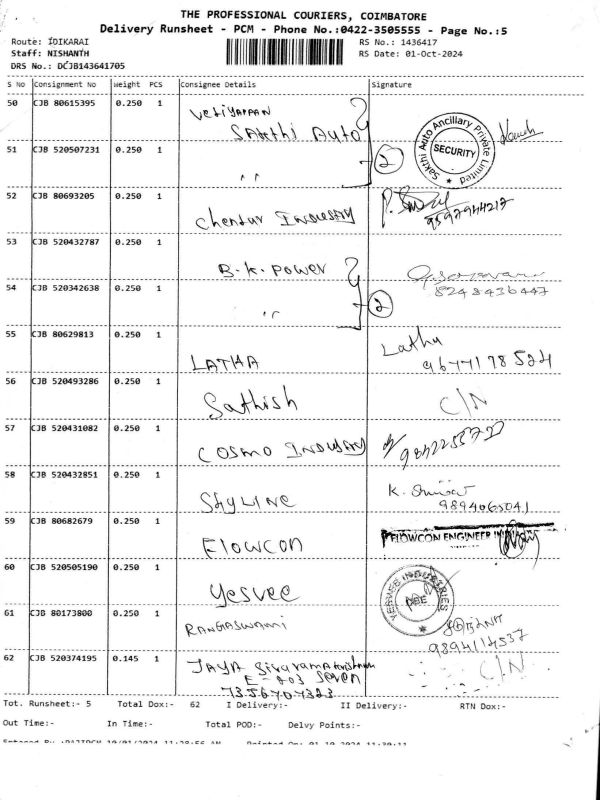 THE PROFESSIONAL COURIERS, COIMBATORE
Delivery Runsheet - PCM - Phone No.:0422-3505555 - Page No.:5
Route: IDIKARAI RS No.: 1436417
Staff: NISHANTH RS Date: 01-Oct-2024
DRS No.: DCJB143641705
S No Consignment No Weight PCS Consignee Details Signature
50 CJB 80615395 0.250 1 Vetiyappan
Sakthi Auto
Sakthi Auto Ancillary Private Limited
SECURITY
51 CJB 520507231 0.250 1 ,, 2
52 CJB 80693205 0.250 1 Chendur Industry
9597944217
53 CJB 520432787 0.250 1 B.K. Power
8248436447
54 CJB 520342638 0.250 1 ,, 2
55 CJB 80629813 0.250 1 LATHA Latha
9677178524
56 CJB 520493286 0.250 1 Sathish C/N
57 CJB 520431082 0.250 1 COSMO INDUSTRY
58 CJB 520432851 0.250 1 SKYLINE K.
9894065041
59 CJB 80682679 0.250 1 Flowcon FLOWCON ENGINEER
60 CJB 520505190 0.250 1 Yesvee YESVEE INDUSTRIES
61 CJB 80173800 0.250 1 RANGASWAMI
9894114537
62 CJB 520374195 0.145 1 JAYA Sivaramakrishnan C/N
E-203 Seven
7356707323
Tot. Runsheet:- 5 Total Dox:- 62 I Delivery:- II Delivery:- RTN Dox:-
Out Time:- In Time:- Total POD:- Delvy Points:-